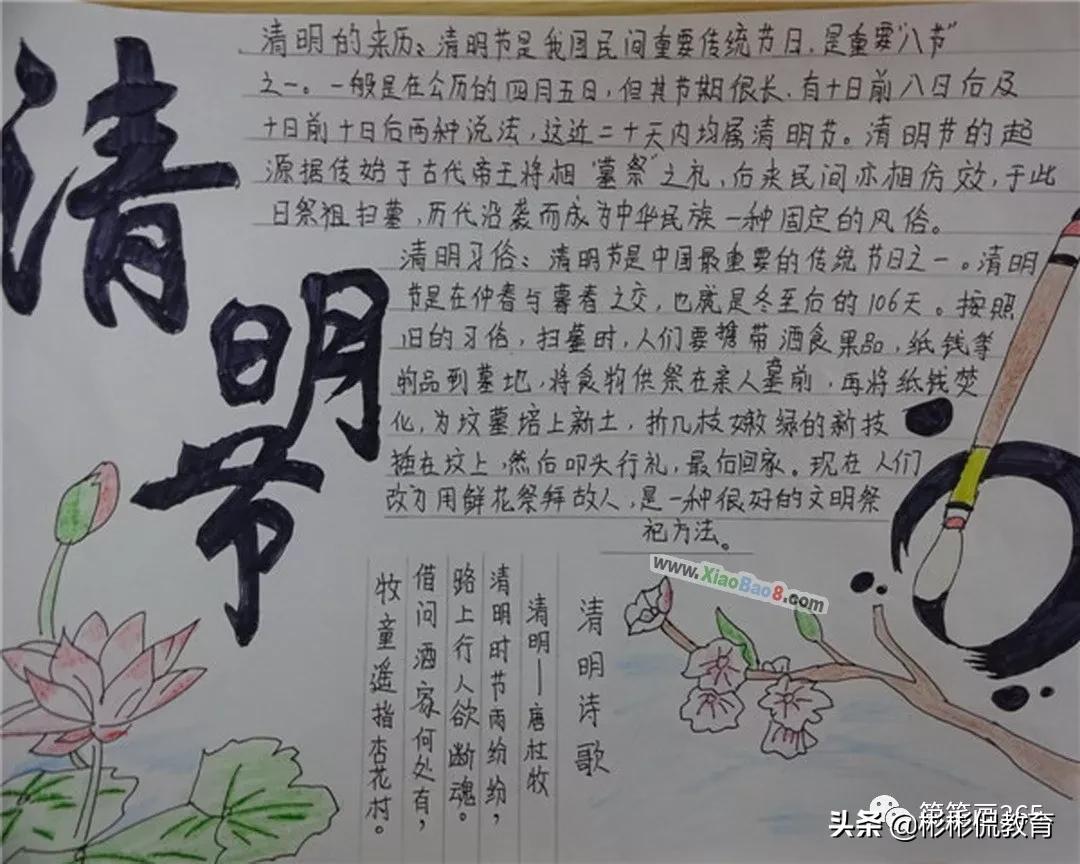 清明节
清明的来历：清明节是我国民间重要传统节日，是重要“八节”
之一。一般是在公历的四月五日，但其节期很长，有十日前八日后及
十日前十日后两种说法，这近二十天内均属清明节。清明节的起
源据传始于古代帝王将相“墓祭”之礼，后来民间亦相仿效，于此
日祭祖扫墓，历代沿袭而成为中华民族一种固定的风俗。
清明习俗：清明节是中国最重要的传统节日之一。清明
节是在仲春与暮春之交，也就是冬至后的106天。按照
旧的习俗，扫墓时，人们要携带酒食果品，纸钱等
物品到墓地，将食物供祭在亲人墓前，再将纸钱焚
化，为坟墓培上新土，折几枝嫩绿的新技
插在坟上，然后叩头行礼，最后回家。现在人们
改为用鲜花祭拜故人，是一种很好的文明祭
祀方法。
清明诗歌
清明——唐杜牧
清明时节雨纷纷，
路上行人欲断魂。
借问酒家何处有，
牧童遥指杏花村。
www.XiaoBao8.com
笔笔画365
头条@彬彬侃教育